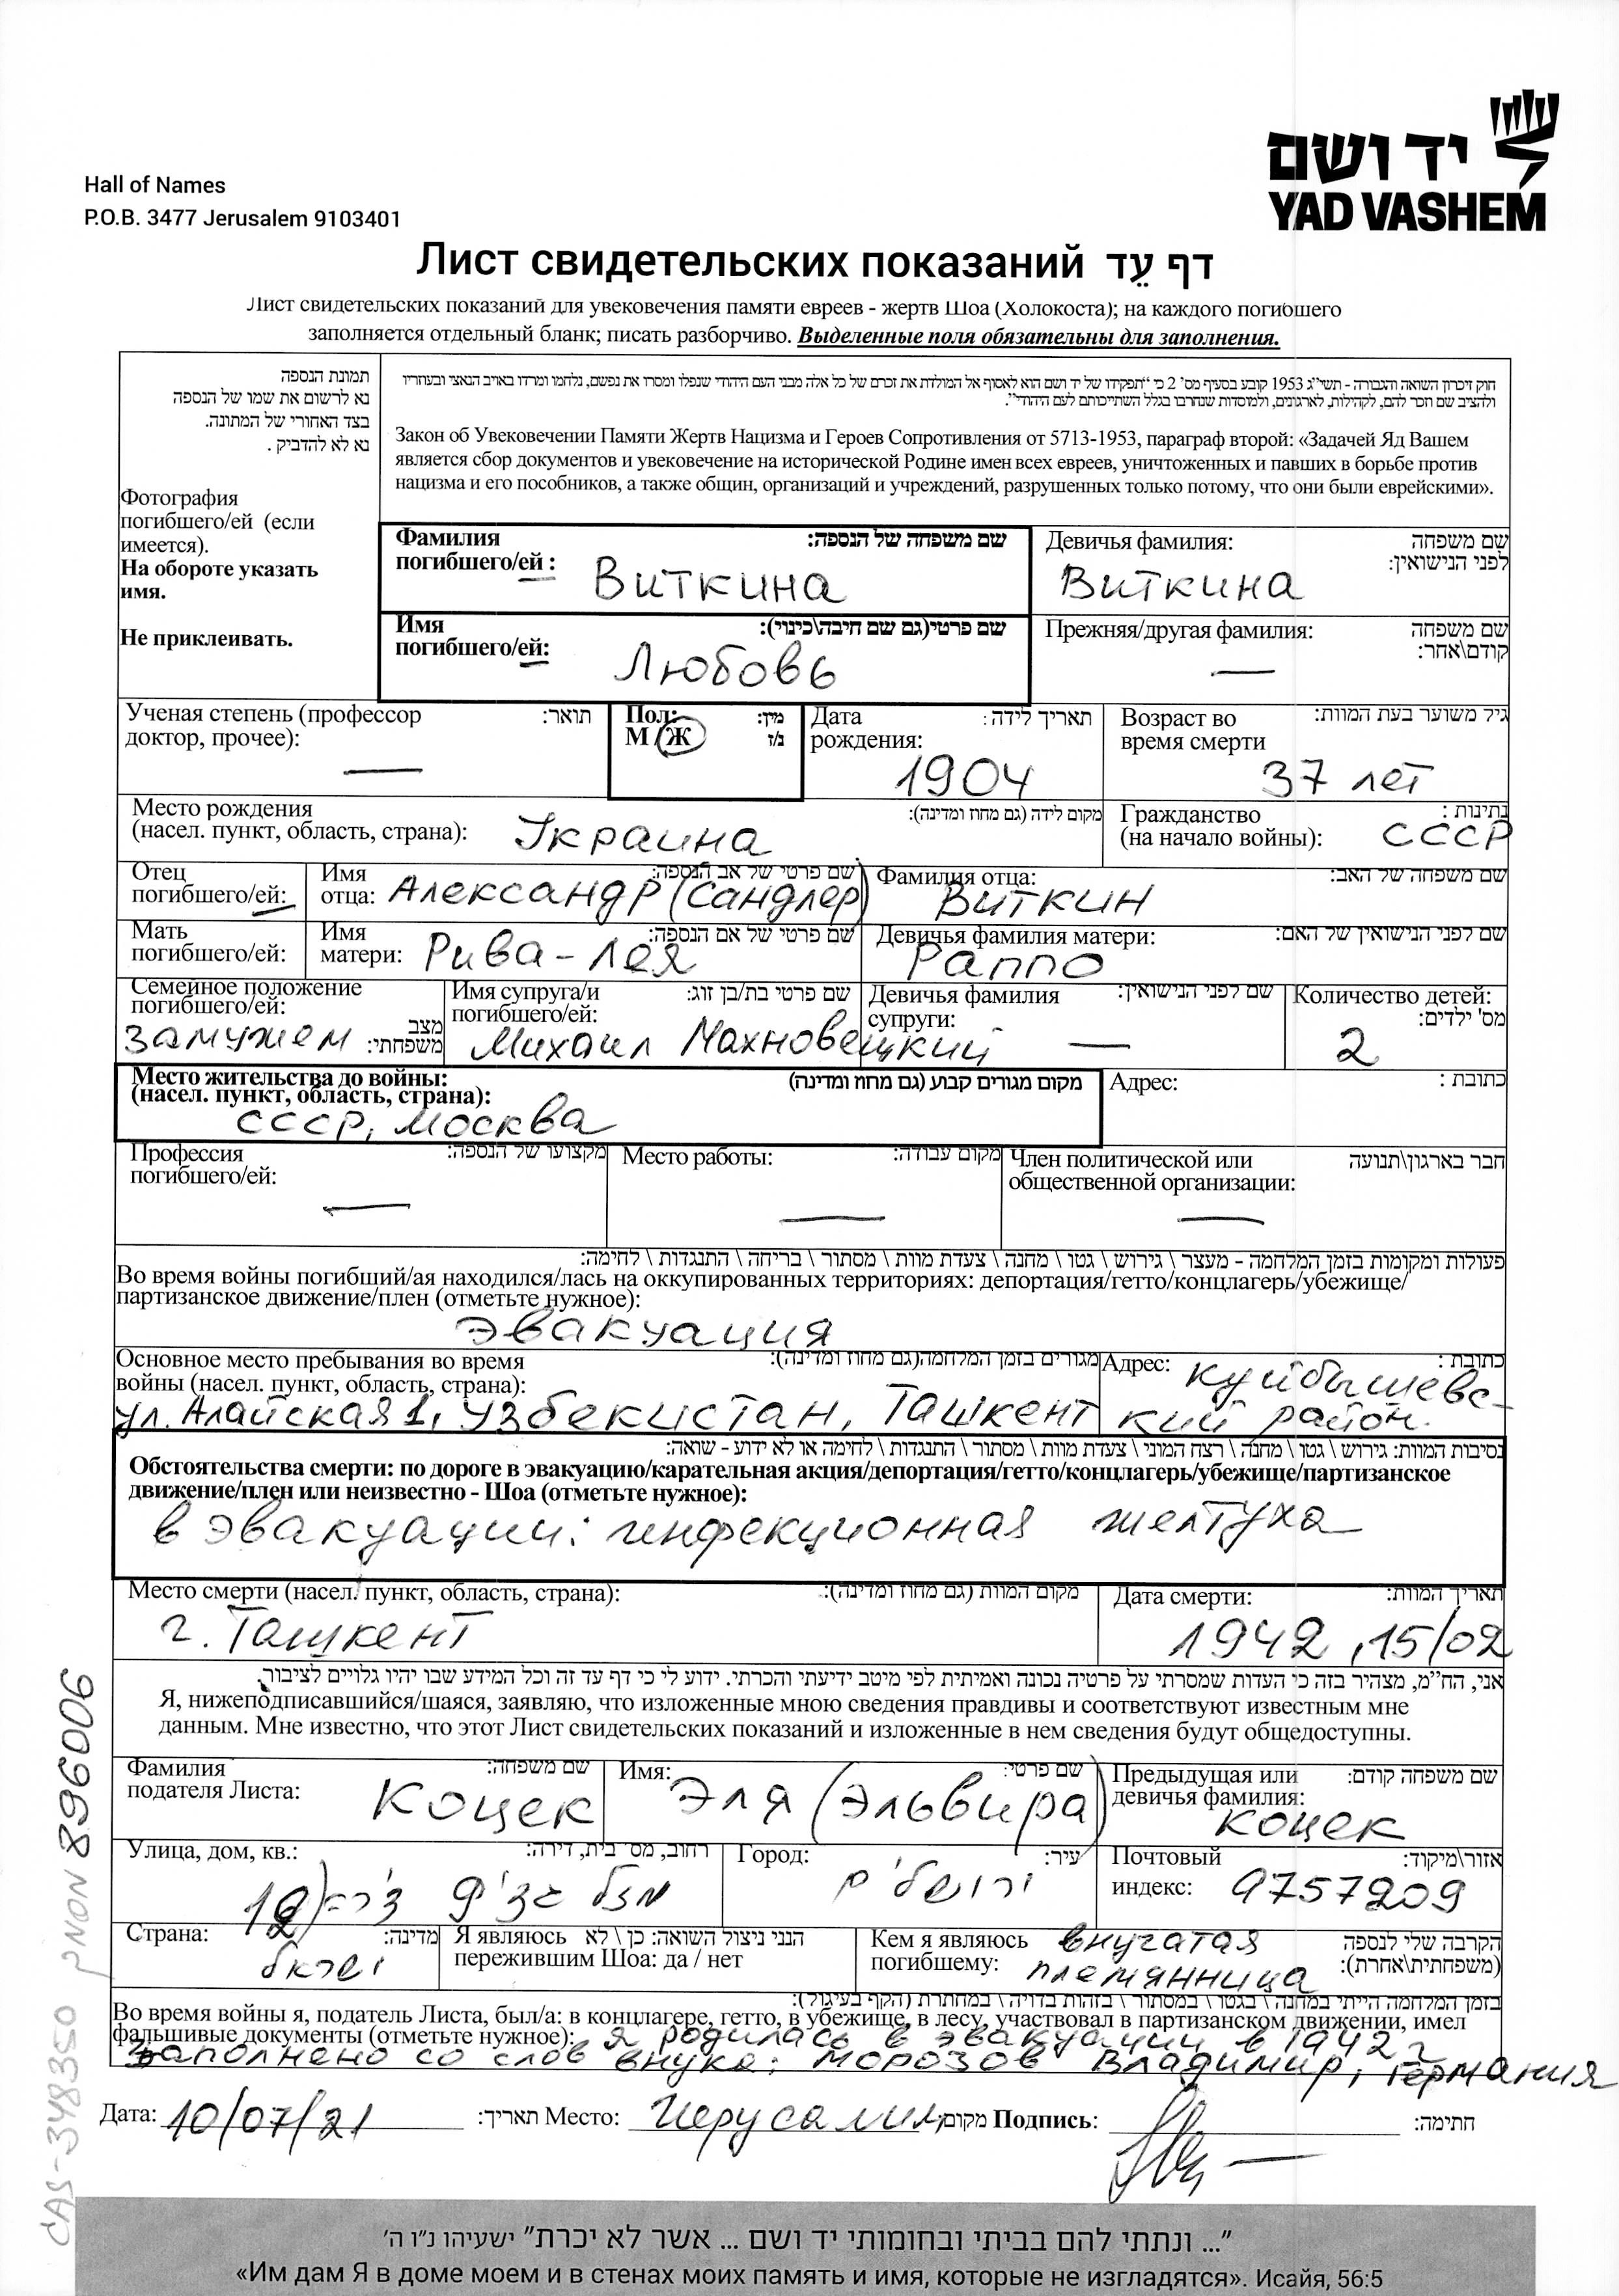 יד ושם
YAD VASHEM
Hall of Names
P.O.B. 3477 Jerusalem 9103401
Лист свидетельских показаний דף עֵד
Лист свидетельских показаний для увековечения памяти евреев - жертв Шоа (Холокоста); на каждого погибшего
заполняется отдельный бланк; писать разборчиво. Выделенные поля обязательны для заполнения.
תמונת הנספה
נא לרשום את שמו של הנספה
בצד האחורי של המתונה.
נא לא להדביק .
Фотография
погибшего/ей (если
имеется).
На обороте указать
имя.
Не приклеивать.
חוק זיכרון השואה והגבורה - תשי"ג 1953 קובע בסעיף מס' 2 כי "תפקידו של יד ושם הוא לאסוף אל המולדת את זכרם של כל אלה מבני העם היהודי שנפלו ומסרו את נפשם, נלחמו ומרדו באויב הנאצי ובעוזריו
ולהציב שם וזכר להם, לקהילות, לארגונים, ולמוסדות שנחרבו בגלל השתייכותם לעם היהודי".
Закон об Увековечении Памяти Жертв Нацизма и Героев Сопротивления от 5713-1953, параграф второй: «Задачей Яд Вашем
является сбор документов и увековечение на исторической Родине имен всех евреев, уничтоженных и павших в борьбе против
нацизма и его пособников, а также общин, организаций и учреждений, разрушенных только потому, что они были еврейскими».
Фамилия שם משפחה של הנספה:
погибшего/ей : Виткина
Девичья фамилия: שם משפחה
לפני הנישואין:
Виткина
Имя שם פרטי(גם שם חיבה\כינוי):
погибшего/ей: Любовь
Прежняя/другая фамилия: שם משפחה
קודם\אחר:
—
Ученая степень (профессор תואר:
доктор, прочее):
—
Пол: מין:
М /Ж ז/נ
Дата תאריך לידה:
рождения:
1904
Возраст во גיל משוער בעת המוות:
время смерти
37 лет
Место рождения מקום לידה (גם מחוז ומדינה):
(насел. пункт, область, страна): Украина
Гражданство נתינות :
(на начало войны): СССР
Отец
погибшего/ей:
Имя שם פרטי של אב הנספה:
отца: Александр (Сандлер)
Фамилия отца: שם משפחה של האב:
Виткин
Мать
погибшего/ей:
Имя שם פרטי של אם הנספה:
матери: Рива-Лея
Девичья фамилия матери: שם לפני הנישואין של האם:
Раппо
Семейное положение
погибшего/ей:
замужем מצב
משפחתי:
Имя супруга/и שם פרטי בת/בן זוג:
погибшего/ей:
Михаил Махновецкий
Девичья фамилия שם לפני הנישואין:
супруги:
—
Количество детей:
מס' ילדים:
2
Место жительства до войны: מקום מגורים קבוע (גם מחוז ומדינה)
(насел. пункт, область, страна):
СССР, Москва
Адрес: כתובת :
Профессия מקצועו של הנספה:
погибшего/ей:
—
Место работы: מקום עבודה:
—
Член политической или חבר בארגון\תנועה
общественной организации:
—
פעולות ומקומות בזמן המלחמה - מעצר \ גירוש \ גטו \ מחנה \ צעדת מוות \ מסתור \ בריחה \ התנגדות \ לחימה:
Во время войны погибший/ая находился/лась на оккупированных территориях: депортация/гетто/концлагерь/убежище/
партизанское движение/плен (отметьте нужное):
эвакуация
Основное место пребывания во время מגורים בזמן המלחמה(גם מחוז ומדינה):
войны (насел. пункт, область, страна):
ул. Алайская 1, Узбекистан, Ташкент
Адрес: כתובת :
Куйбышевс-
кий район.
נסיבות המוות: גירוש \ גטו \ מחנה \ רצח המוני \ צעדת מוות \ מסתור \ התנגדות \ לחימה או לא ידוע - שואה:
Обстоятельства смерти: по дороге в эвакуацию/карательная акция/депортация/гетто/концлагерь/убежище/партизанское
движение/плен или неизвестно - Шоа (отметьте нужное):
в эвакуации: инфекционная желтуха
Место смерти (насел. пункт, область, страна): מקום המוות (גם מחוז ומדינה):
г. Ташкент
Дата смерти: תאריך המוות:
1942, 15/02
אני, הח"מ, מצהיר בזה כי העדות שמסרתי על פרטיה נכונה ואמיתית לפי מיטב ידיעתי והכרתי. ידוע לי כי דף עד זה וכל המידע שבו יהיו גלויים לציבור.
Я, нижеподписавшийся/шаяся, заявляю, что изложенные мною сведения правдивы и соответствуют известным мне
данным. Мне известно, что этот Лист свидетельских показаний и изложенные в нем сведения будут общедоступны.
Фамилия שם משפחה:
подателя Листа: Коцек
Имя: שם פרטי:
Эля (Эльвира)
Предыдущая или שם משפחה קודם:
девичья фамилия:
Коцек
Улица, дом, кв.: רחוב, מס' בית, דירה:
Город: עיר:
ירושלים
Почтовый אזור\מיקוד:
индекс: 9757209
Страна: מדינה:
ישראל
Я являюсь הנני ניצול השואה: כן \ לא
пережившим Шоа: да / нет
Кем я являюсь הקרבה שלי לנספה
погибшему: (משפחתית\אחרת):
внучатая
племянница
בזמן המלחמה הייתי במחנה \ בגטו \ במסתור \ בזהות בדויה \ במחתרת (הקף בעיגול):
Во время войны я, податель Листа, был/а: в концлагере, гетто, в убежище, в лесу, участвовал в партизанском движении, имел
фальшивые документы (отметьте нужное): я родилась в эвакуации в 1942 г
Заполнено со слов внука: Морозов Владимир, Германия
Дата: 10/07/21 תאריך: Место: Иерусалим מקום Подпись: חתימה:
CAS-348350 PNON 896006
"... ונתתי להם בביתי ובחומותי יד ושם ... אשר לא יכרת" ישעיהו נ"ו ה'
«Им дам Я в доме моем и в стенах моих память и имя, которые не изгладятся». Исайя, 56:5